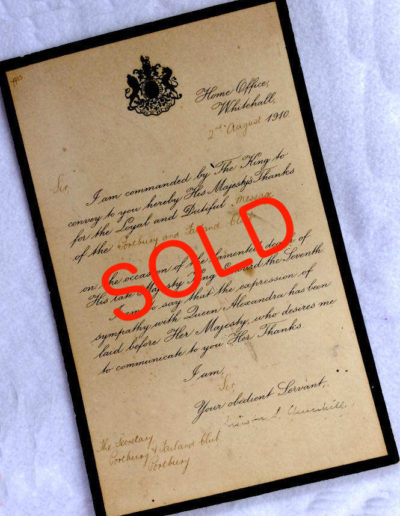 Home Office,
Whitehall,
2nd August 1910.
Sir,
I am commanded by The King to
convey to you hereby His Majesty's Thanks
for the Loyal and Dutiful Message
of the Portbury and Failand Club
on the occasion of the lamented death of
His late Majesty King Edward the Seventh
to say that the expression of
sympathy with Queen Alexandra has been
laid before Her Majesty, who desires me
to communicate to you Her Thanks.
I am,
Sir,
Your obedient Servant,
Winston S. Churchill.
The Secretary
Portbury & Failand Club
Portbury
SOLD